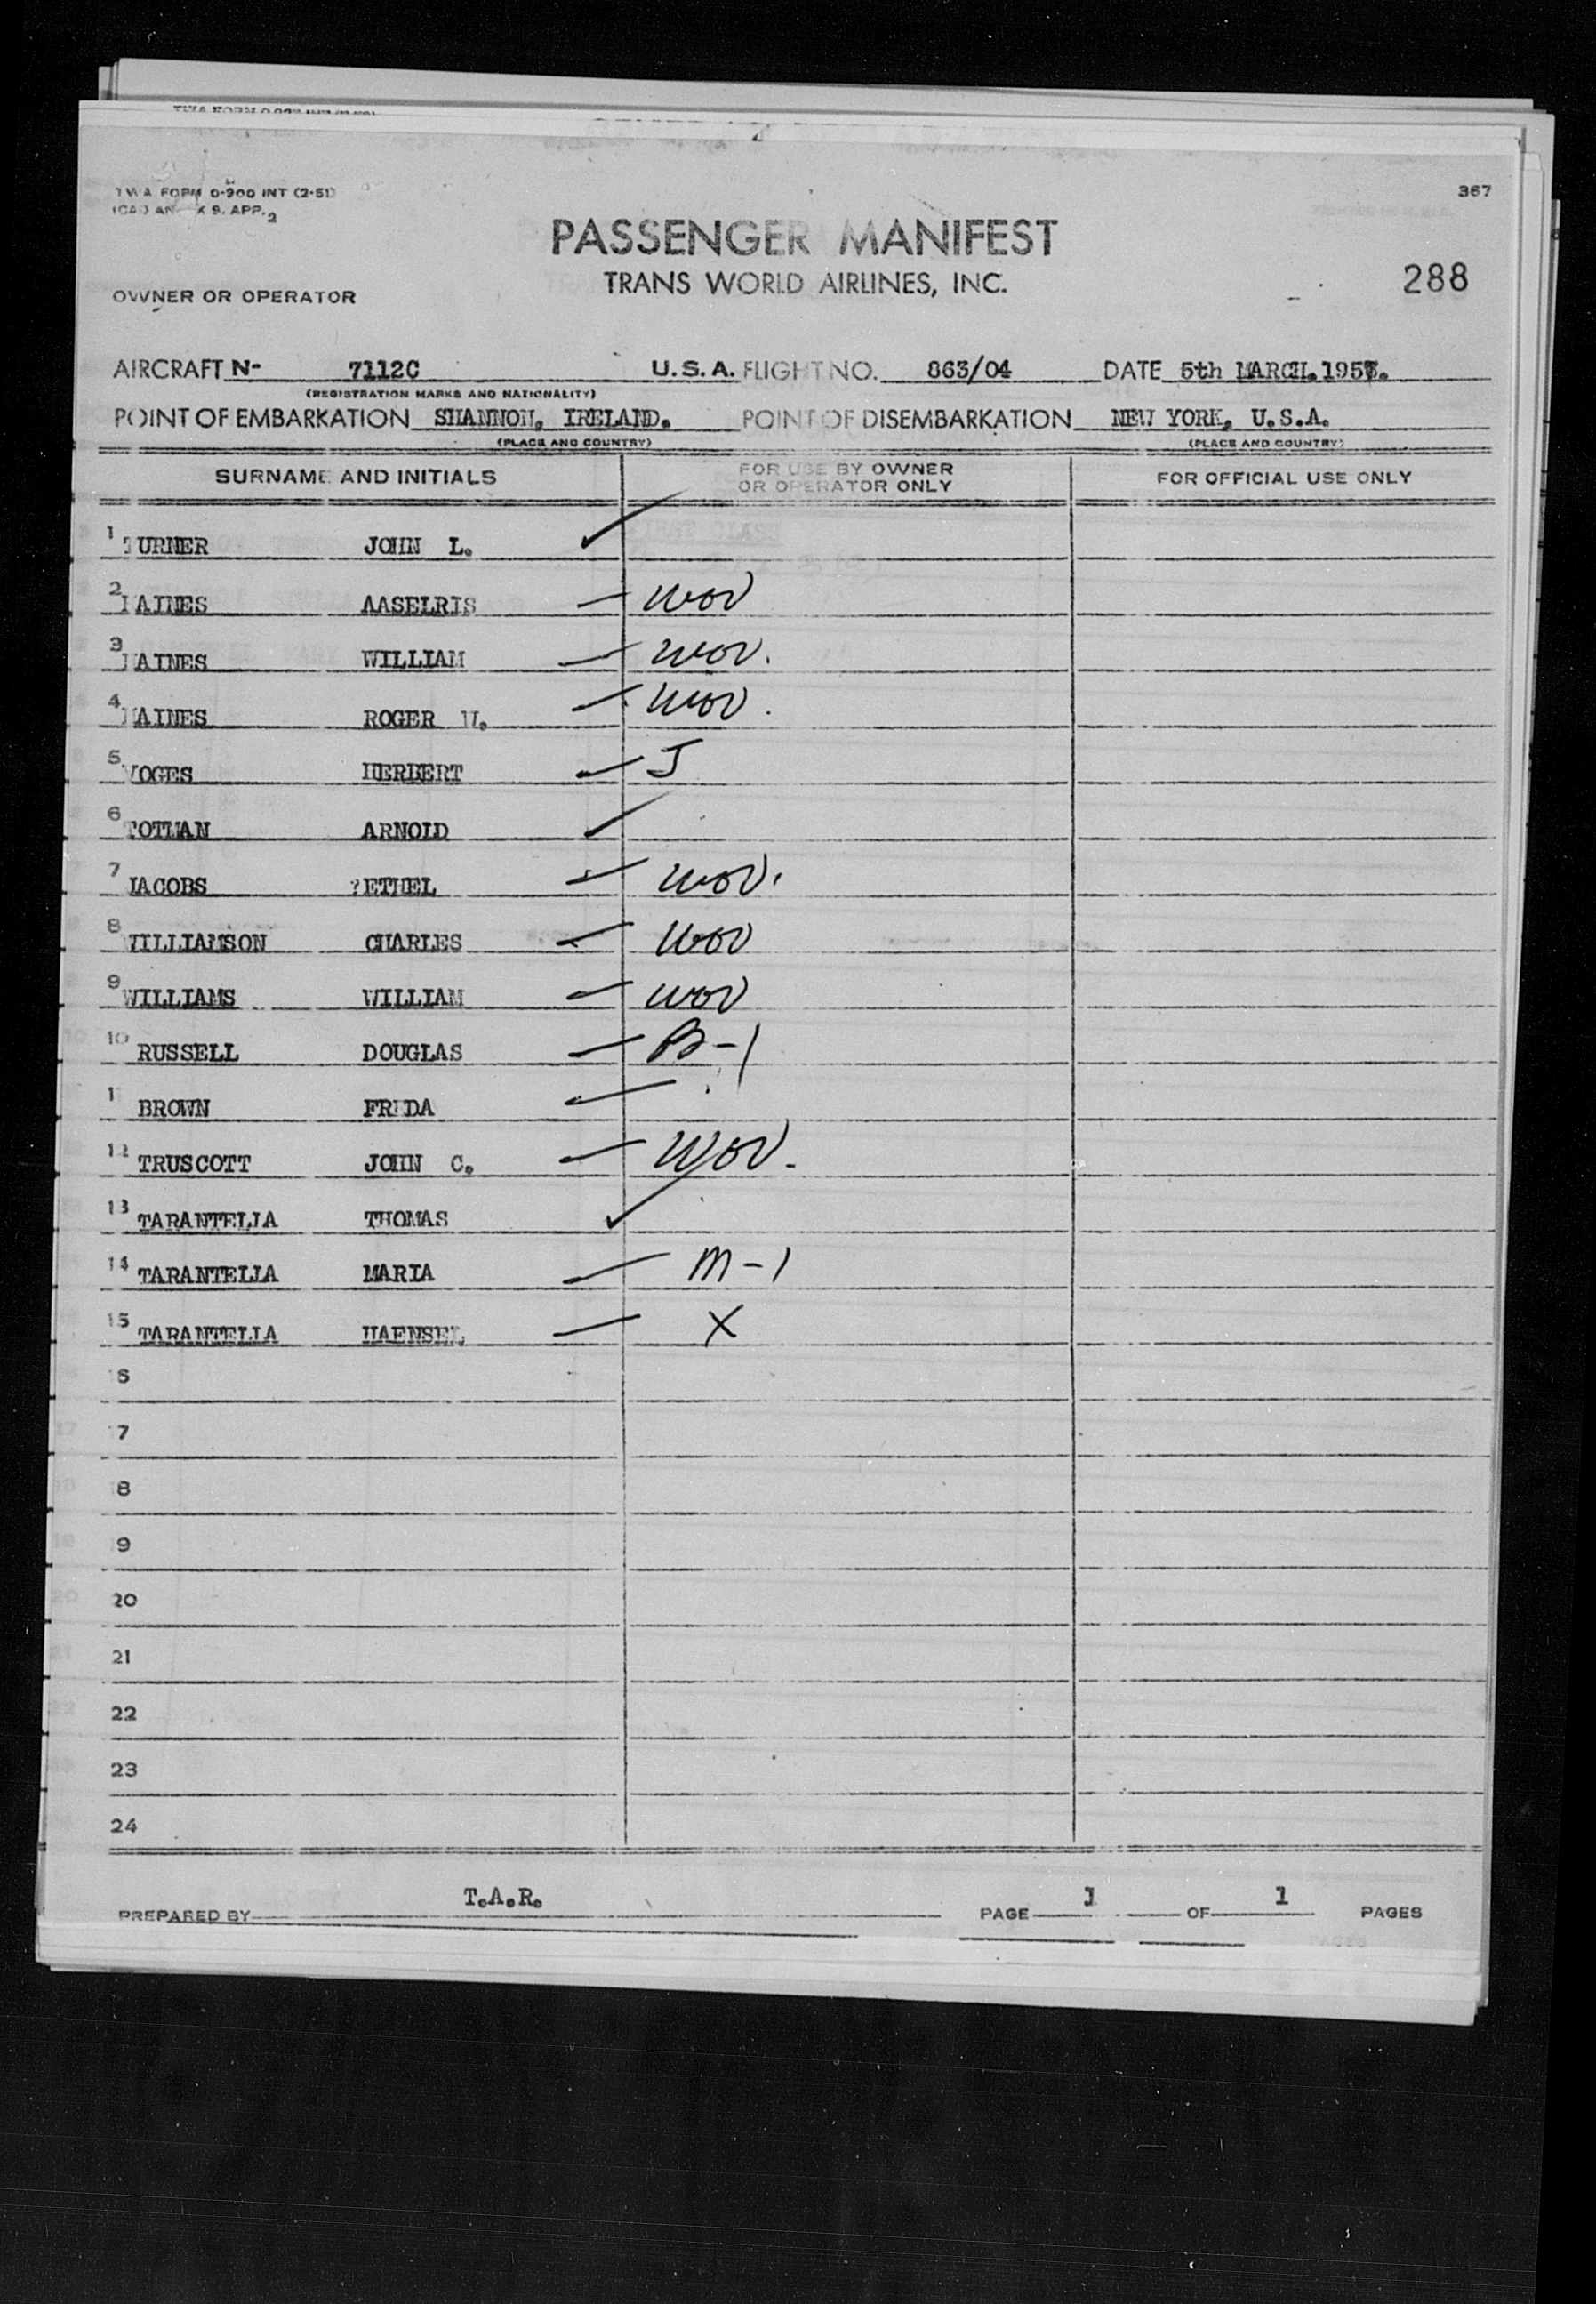 TWA FORM 0-900 INT (2-51)
9. APP. 2
367
PASSENGER MANIFEST
TRANS WORLD AIRLINES, INC.
288
OWNER OR OPERATOR
AIRCRAFT N- 7112C U.S.A. FLIGHT NO. 863/04 DATE 5th MARCH.1957.
(REGISTRATION MARKS AND NATIONALITY)
POINT OF EMBARKATION SHANNON, IRELAND. POINT OF DISEMBARKATION NEW YORK, U.S.A.
(PLACE AND COUNTRY) (PLACE AND COUNTRY)
SURNAME AND INITIALS FOR USE BY OWNER OR OPERATOR ONLY FOR OFFICIAL USE ONLY
1 TURNER JOHN L.
2 AASELRIS wov
3 WILLIAM wov.
4 ROGER wov.
5 VOGES HERBERT J
6 ARNOLD
7 JACOBS ETHEL wov.
8 WILLIAMSON CHARLES wov
9 WILLIAMS WILLIAM wov
10 RUSSELL DOUGLAS B-1
1 BROWN FRIDA
12 TRUSCOTT JOHN C. wov.
13 TARANTELLA THOMAS
14 TARANTELLA MARIA M-1
15 TARANTELLA HAENSEL X
6
7
8
9
20
21
22
23
24
PREPARED BY T.A.R. PAGE 1 OF 1 PAGES